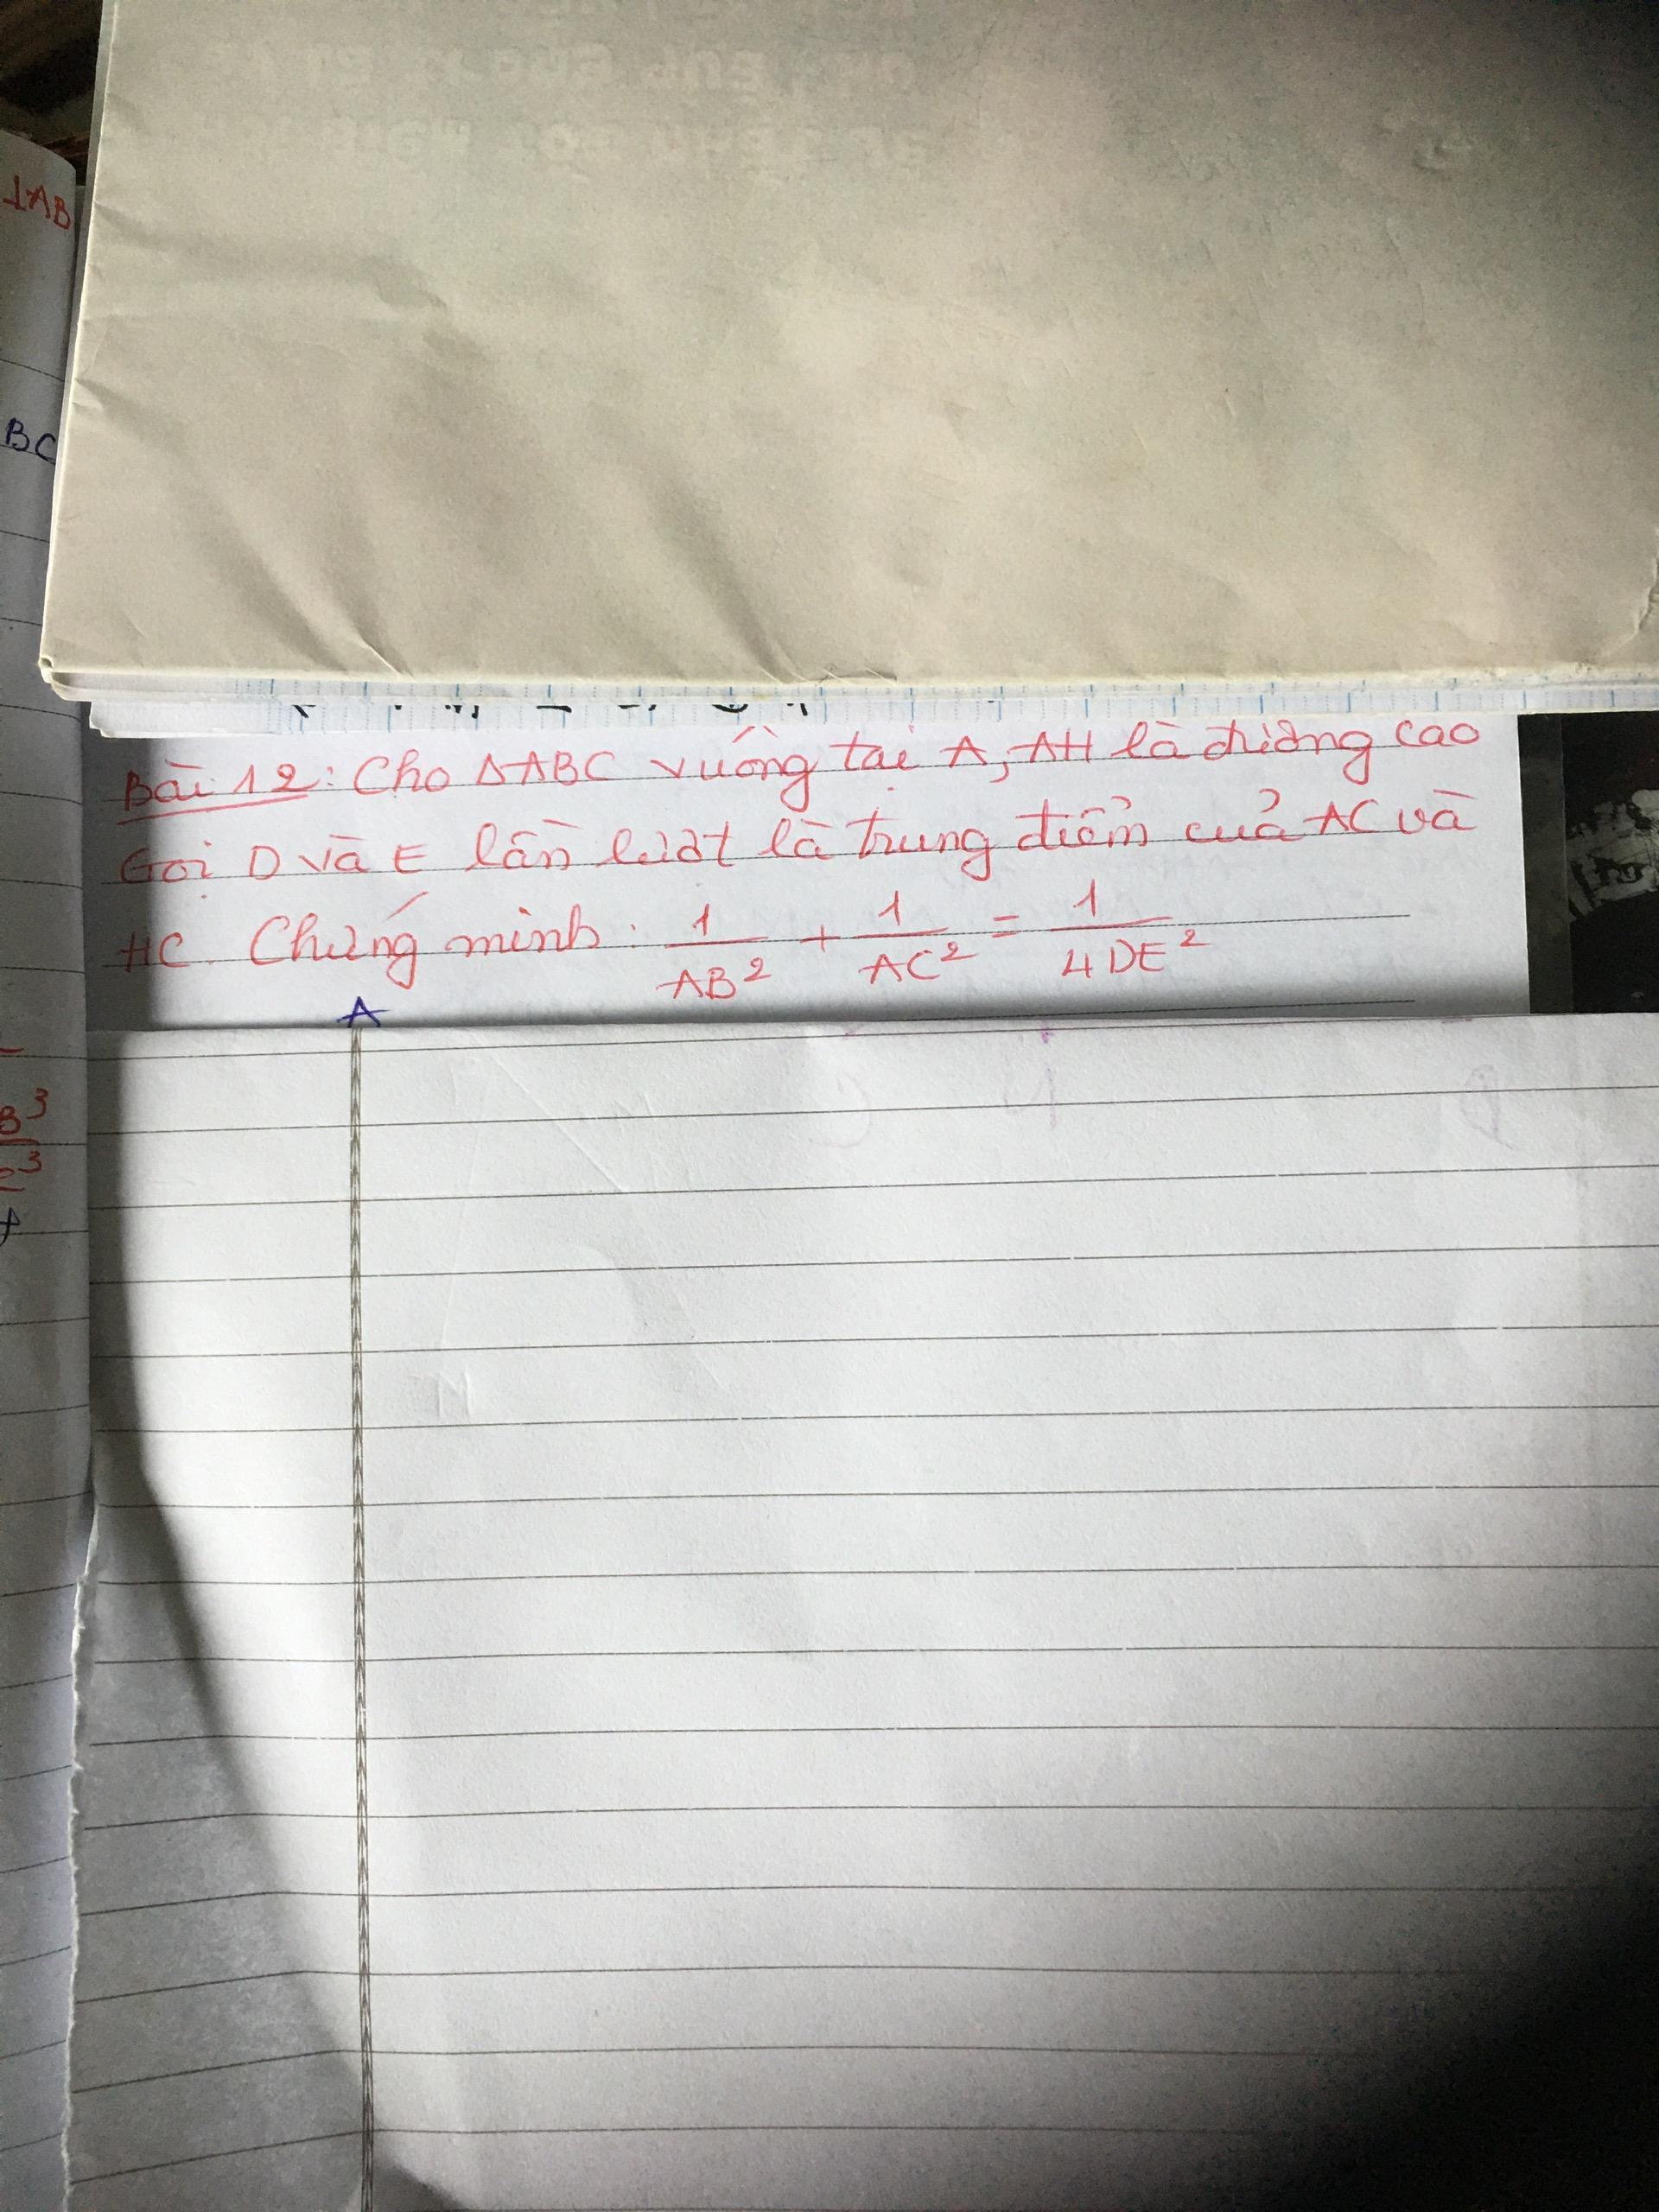 ⊥AB
BC
Bài 12: Cho ΔABC vuông tại A, AH là đường cao
Gọi D và E lần lượt là trung điểm của AC và
HC. Chứng minh: 1/AB² + 1/AC² = 1/4DE²
A
B³